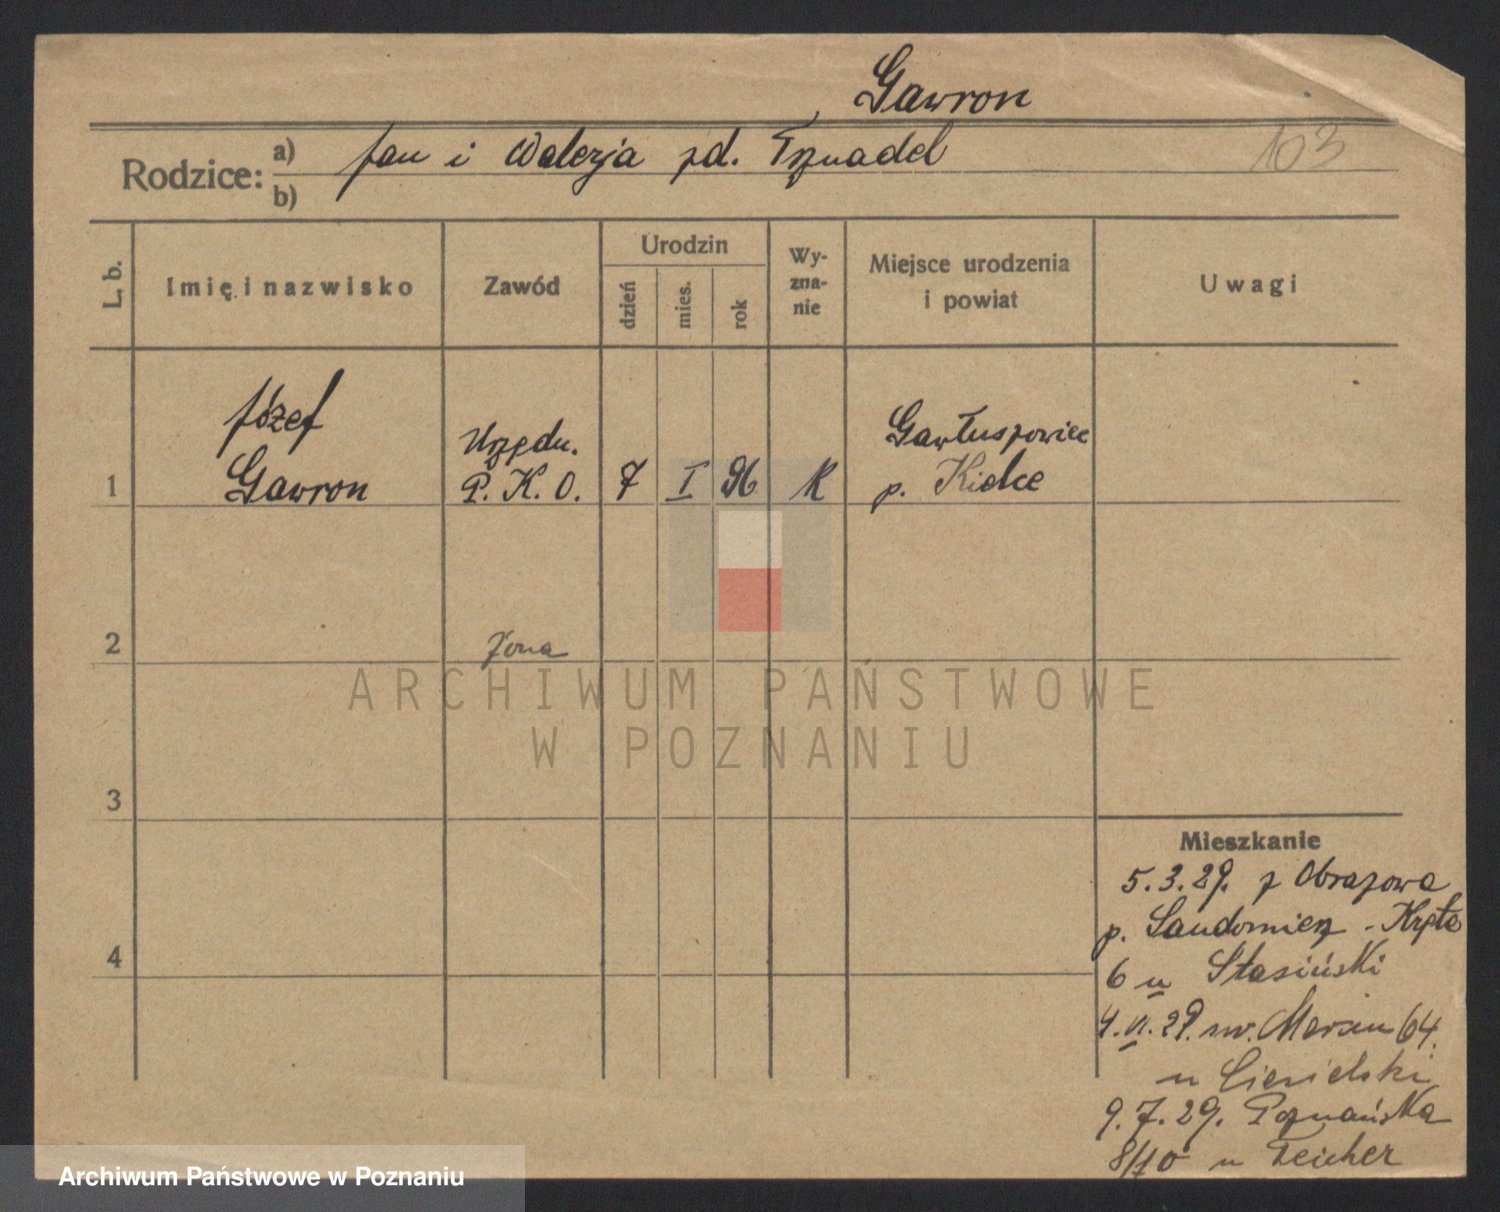 Gawron
103
Rodzice: a) Jan i Walerja zd. Trznadel
b)
L. b. Imię i nazwisko Zawód Urodzin dzień mies. rok Wy-zna-nie Miejsce urodzenia i powiat Uwagi
Józef Urzędn. Gawłuszowiec
1 Gawron P. K. O. 7 I 96 K p. Kielce
2 Żona
ARCHIWUM PAŃSTWOWE
W POZNANIU
3
Mieszkanie
5.3.29. z Obrazowa
p. Sandomierz - Kręta
4 6 u Stasiński
4.VI.29. św. Marcin 64.
u Ciesielski
9.7.29. Poznańska
8/10 u Teicher
Archiwum Państwowe w Poznaniu